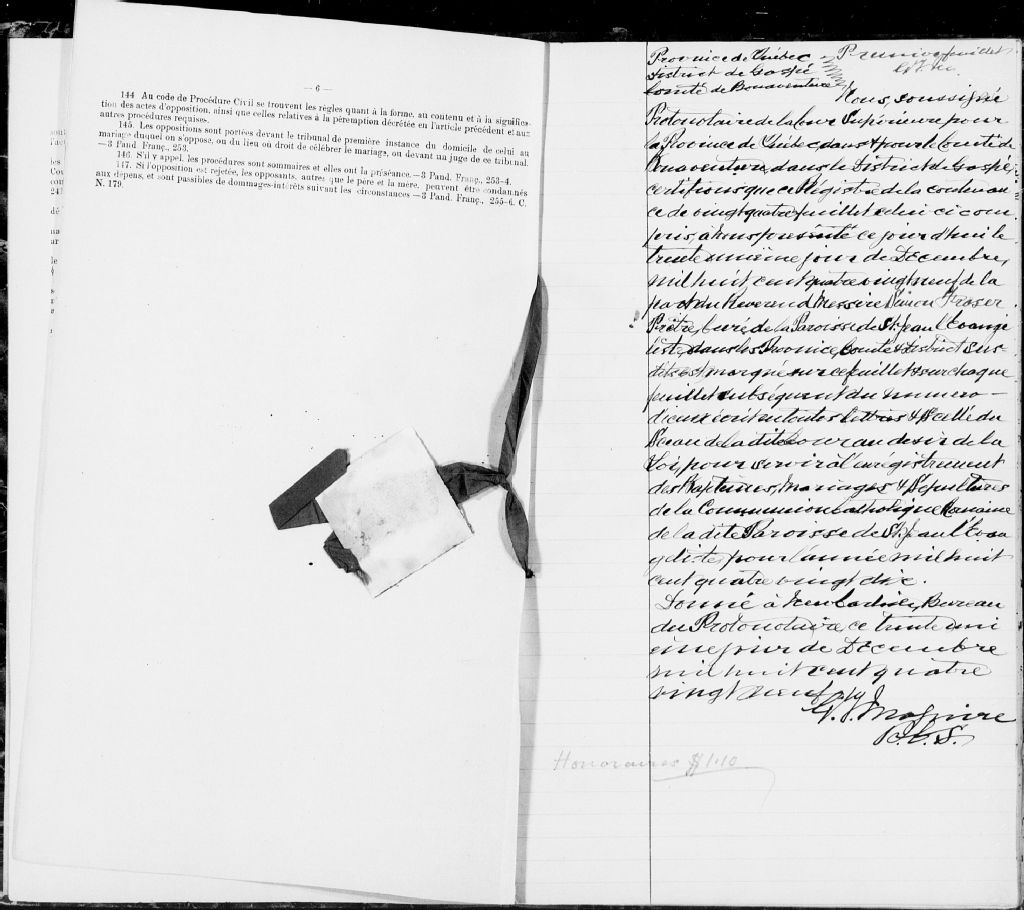 — 6 —
144 Au code de Procédure Civil se trouvent les règles quant à la forme, au contenu et à la significa-
tion des actes d'opposition, ainsi que celles relatives à la péremption décrétée en l'article précédent et aux
autres procédures requises.
145. Les oppositions sont portées devant le tribunal de première instance du domicile de celui au
mariage duquel on s'oppose, ou du lieu où droit de célébrer le mariage, ou devant un juge de ce tribunal.
—3 Pand. Franç., 253.
146. S'il y appel, les procédures sont sommaires et elles ont la préséance.—3 Pand. Franç., 253-4.
147. Si l'opposition est rejetée, les opposants, autres que le père et la mère, peuvent être condamnés
aux dépens, et sont passibles de dommages-intérêts suivant les circonstances.—3 Pand. Franç., 255-6. C.
N. 179.
Province de Québec
District de Gaspé
Comté de Bonaventure
Premier feuillet
Nous, soussigné
Protonotaire de la Cour Supérieure pour
la Province de Québec, dans & pour le Comté de
Bonaventure, dans le District de Gaspé,
certifions que ce Régistre de la contenan
ce de vingt quatre feuillets celui ci com
pris, à nous présenté ce jour d'hui le
trente unième jour de Décembre,
mil huit cent quatre vingt neuf de la
part du Reverend Messire Simon Fraser
Prêtre, Curé, de la Paroisse de St. Jean l'Evangé
liste, dans les Province, Comté & District sus-
dits est marqué sur ce feuillet & sur chaque
feuillet subséquent du numero —
d'iceux écrit en toutes lettres & Scellé du
Sceau de la dite Cour au desir de la
Loi, pour servir à l'enrégistrement
des Baptêmes, Mariages & Sépultures
de la Communion Catholique Romaine
de la dite Paroisse de St. Jean l'Evan
géliste, pour l'année mil huit
cent quatre vingt dix.
Donné à New Carlisle, Bureau
du Protonotaire ce trente uni
ème jour de Décembre
mil huit cent quatre
vingt neuf
P.C.S.
Honoraires $1.10